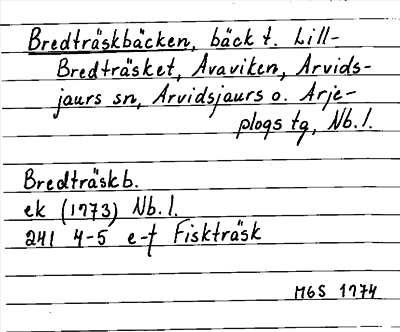 Bredträskbäcken, bäck t. Lill-
Bredträsket, Avaviken, Arvids-
jaurs sn, Arvidsjaurs o. Arje-
plogs tg, Nb. l.
Bredträskb.
ek (1973) Nb. l.
241 4-5 e-f Fiskträsk
MGS 1974